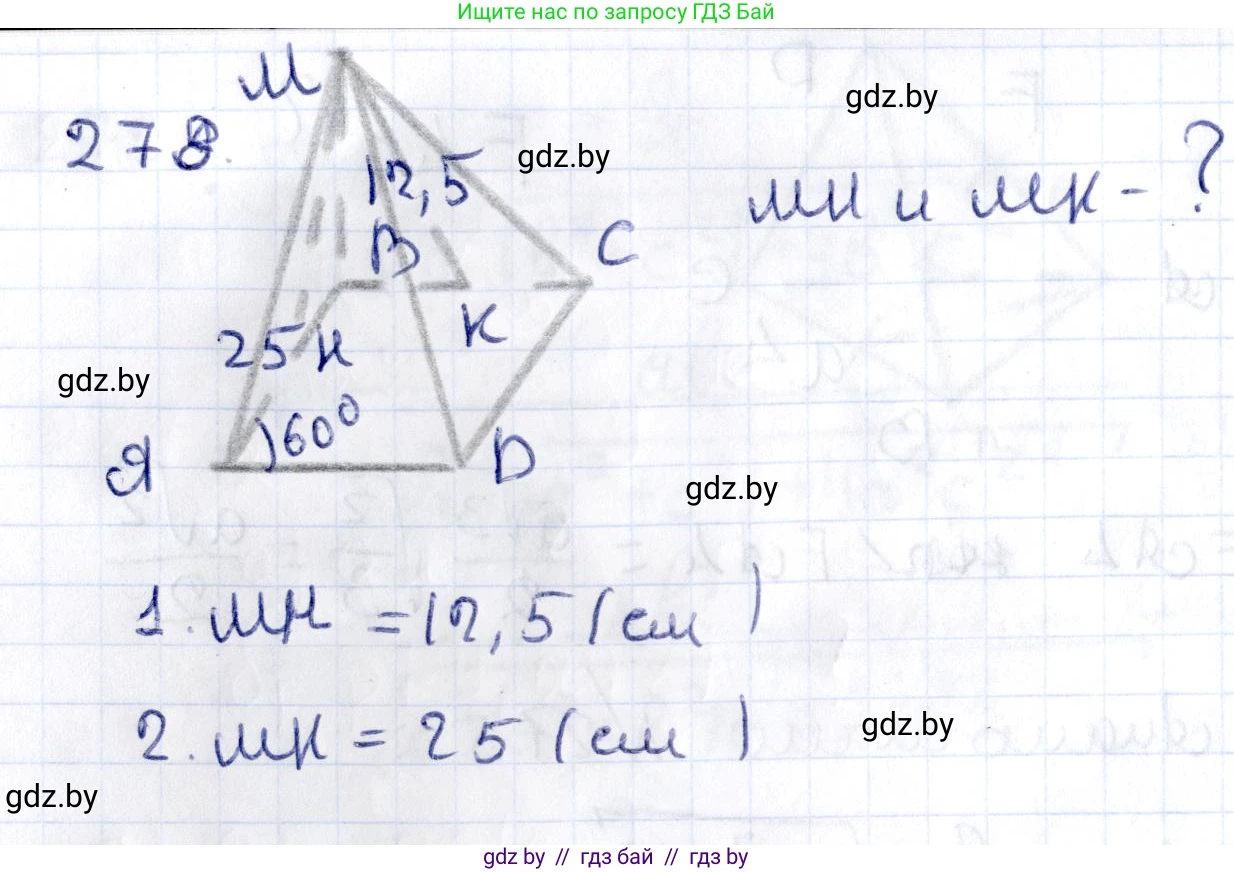 Ищите нас по запросу ГДЗ Бай
М
gdz.by
278.
12,5
gdz.by
МН и МК - ?
В
С
25
Н
К
gdz.by
60°
А
D
gdz.by
1. МН = 12,5 (см)
2. МК = 25 (см)
gdz.by
gdz.by
gdz by // гдз бай // гдз by